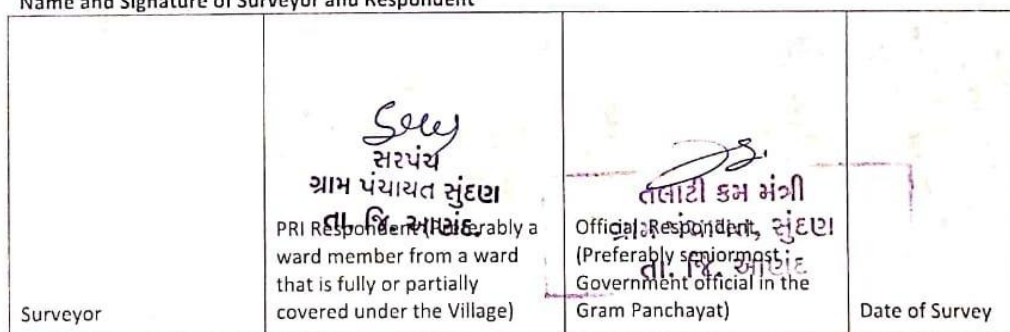 Name and Signature of Surveyor and Respondent
સરપંચ
ગ્રામ પંચાયત સુંદણ
તા. જિ. આણંદ.
PRI Respondent (Preferably a
ward member from a ward
that is fully or partially
covered under the Village)
તલાટી કમ મંત્રી
ગ્રામ પંચાયત, સુંદણ
તા. જિ. આણંદ
Official Respondent,
(Preferably seniormost
Government official in the
Gram Panchayat)
Surveyor
Date of Survey